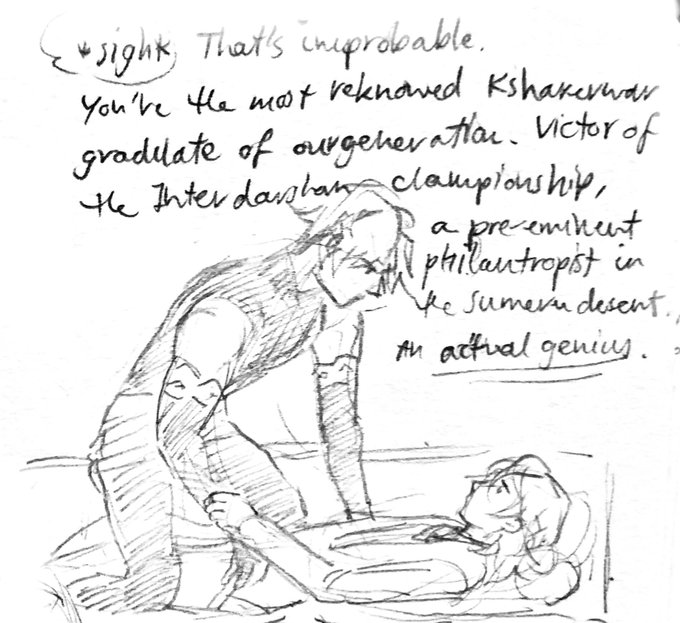 *sigh* That's improbable.
You're the most reknowed Kshahrewar
graduate of our generation. Victor of
the Interdarshan championship,
a pre-eminent
philantropist in
the Sumeru desert.
An actual genius.